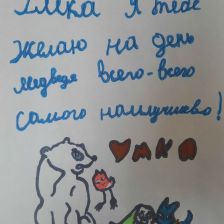 Умка я тебе
желаю на день
медведя всего-всего
самого наилучшево!
♥МКА